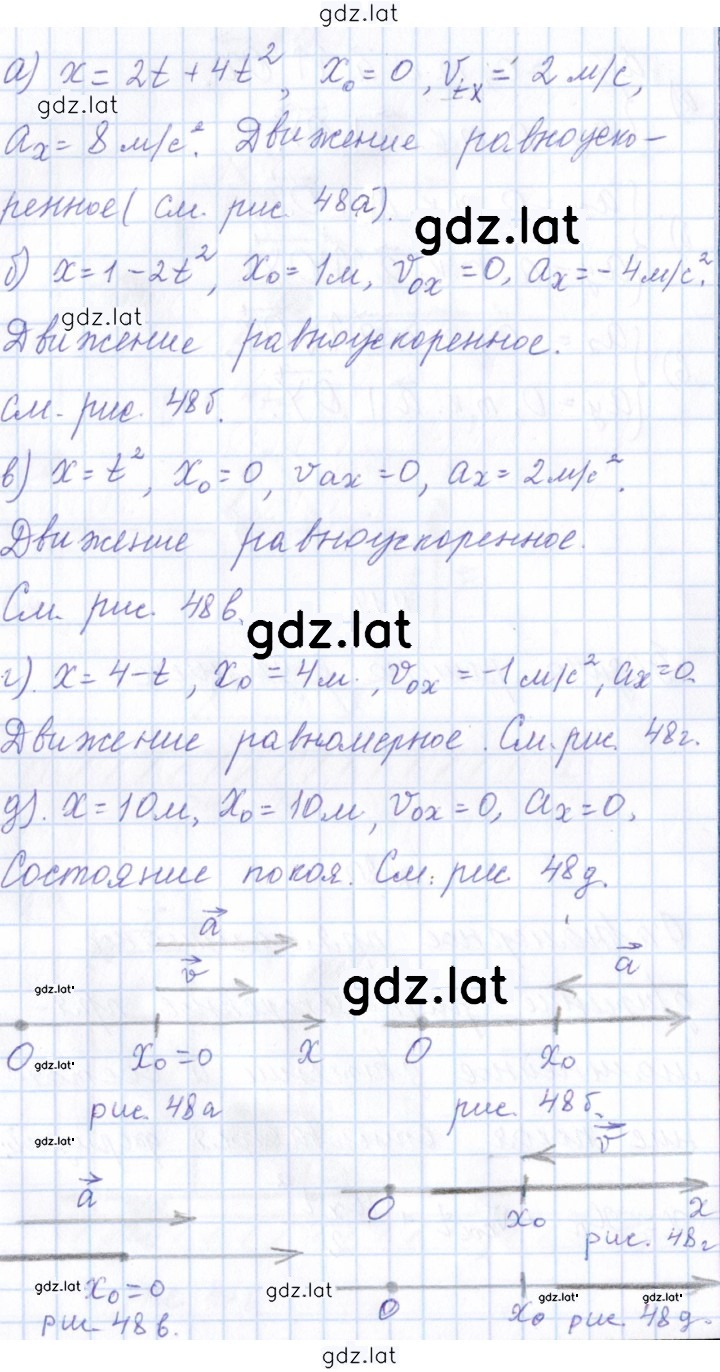 gdz.lat
а) x = 2t + 4t², x₀ = 0, v₁ₓ = 2 м/с,
gdz.lat
aₓ = 8 м/с². Движение равноуско-
ренное ( см. рис. 48а).
gdz.lat
б) x = 1 - 2t², x₀ = 1м, v₀ₓ = 0, aₓ = - 4м/с².
gdz.lat
Движение равноускоренное.
см. рис. 48б.
в) x = t², x₀ = 0, vах = 0, aₓ = 2м/с².
Движение равноускоренное.
См. рис. 48в.
gdz.lat
г). x = 4 - t, x₀ = 4м., v₀ₓ = -1м/с², aₓ = 0.
Движение равномерное. См. рис. 48г.
д). x = 10м, x₀ = 10м, v₀ₓ = 0, aₓ = 0.
Состояние покоя. См. рис 48д.
a⃗
a⃗
v⃗
gdz.lat
gdz.lat
0 x₀ = 0 x
gdz.lat
0 x₀
рис. 48а
рис. 48б.
gdz.lat
v⃗
a⃗
0 x₀ x
рис. 48г
gdz.lat x₀ = 0
gdz.lat
рис. 48в.
0 x₀ рис 48д.
gdz.lat
gdz.lat
gdz.lat